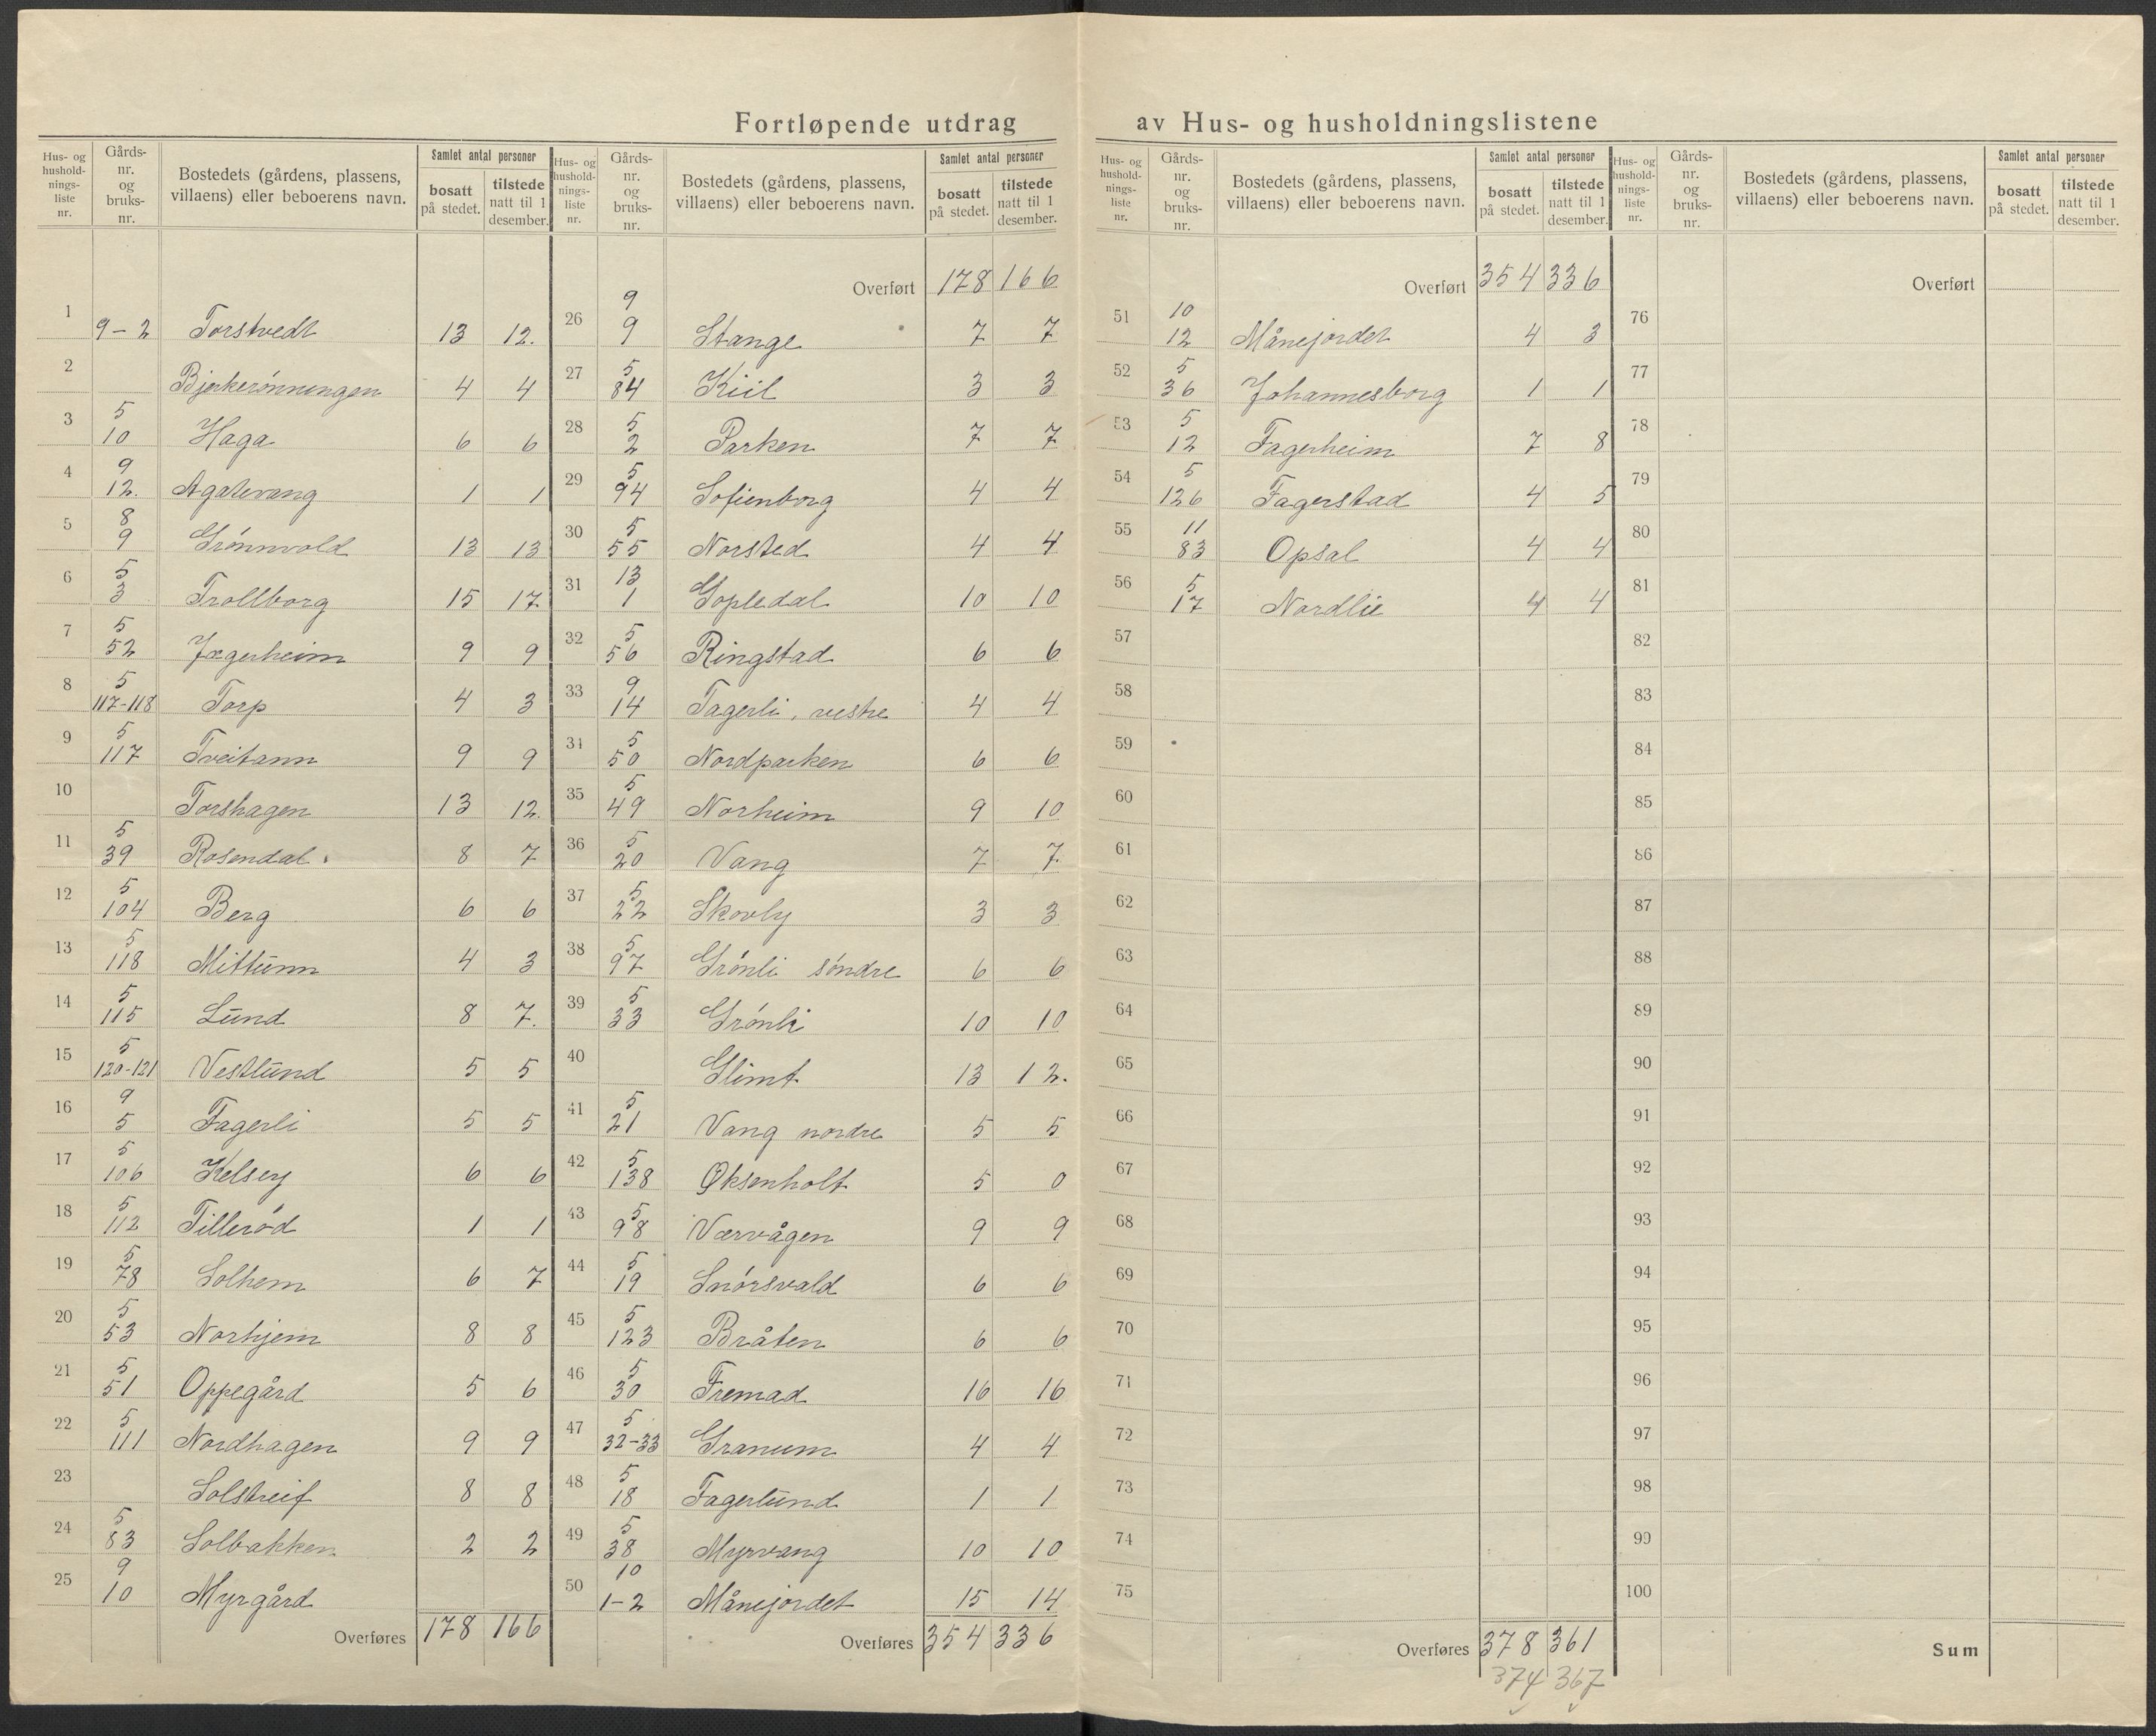 Fortløpende utdrag av Hus- og husholdningslistene
Hus- og husholdningsliste nr. | Gårdsnr. og bruksnr. | Bostedets (gårdens, plassens, villaens) eller beboerens navn. | Samlet antal personer | bosatt på stedet. | tilstede natt til 1 desember.
1 9-2 Torstvedt 13 12.
2 Bjerkerønningen 4 4
3 5 10 Haga 6 6
4 9 12. Agatevang 1 1
5 8 9 Grønnvold 13 13
6 5 3 Trollborg 15 17
7 5 52 Jægerheim 9 9
8 5 117-118 Torp 4 3
9 5 117 Tveitann 9 9
10 Torshagen 13 12.
11 5 39 Rosendal 8 7
12 5 104 Berg 6 6
13 5 118 Mittunn 4 3
14 5 115 Lund 8 7.
15 5 120-121 Vestlund 5 5
16 9 5 Fagerli 5 5
17 5 106 Kelsey 6 6
18 5 112 Tillerød 1 1
19 5 78 Solhem 6 7
20 5 53 Norhjem 8 8
21 5 51 Oppegård 5 6
22 5 111 Nordhagen 9 9
23 Solstreif 8 8
24 5 83 Solbakken 2 2
25 9 10 Myrgård
Overføres 178 166
Hus- og husholdningsliste nr. | Gårdsnr. og bruksnr. | Bostedets (gårdens, plassens, villaens) eller beboerens navn. | Samlet antal personer | bosatt på stedet. | tilstede natt til 1 desember.
Overført 178 166
26 9 9 Stange 7 7
27 5 84 Kiil 3 3
28 5 2 Parken 7 7
29 5 94 Sofienborg 4 4
30 5 55 Norsted 4 4
31 13 1 Gopledal 10 10
32 5 56 Ringstad 6 6
33 9 14 Fagerli, vestre 4 4
34 5 50 Nordparken 6 6
35 5 49 Norheim 9 10
36 5 20 Vang 7 7.
37 5 22 Skovly 3 3
38 5 97 Grønli søndre 6 6
39 5 33 Grønli 10 10
40 Glimt 13 12.
41 5 21 Vang nordre 5 5
42 5 138 Øksenholt 5 0
43 5 98 Værvågen 9 9
44 5 19 Snørsvald 6 6
45 5 123 Bråten 6 6
46 5 30 Fremad 16 16
47 5 32-33 Granum 4 4
48 5 18 Fagerlund 1 1
49 5 38 Myrvang 10 10
50 10 1-2 Månejordet 15 14
Overføres 354 336
Hus- og husholdningsliste nr. | Gårdsnr. og bruksnr. | Bostedets (gårdens, plassens, villaens) eller beboerens navn. | Samlet antal personer | bosatt på stedet. | tilstede natt til 1 desember.
Overført 354 336
51 10 12 Månejordet 4 3
52 5 36 Johannesborg 1 1
53 5 12 Fagerheim 7 8
54 5 126 Fagerstad 4 5
55 11 83 Opsal 4 4
56 5 17 Nordlie 4 4
57
58
59
60
61
62
63
64
65
66
67
68
69
70
71
72
73
74
75
Overføres 378 361
374 367
Hus- og husholdningsliste nr. | Gårdsnr. og bruksnr. | Bostedets (gårdens, plassens, villaens) eller beboerens navn. | Samlet antal personer | bosatt på stedet. | tilstede natt til 1 desember.
Overført
76
77
78
79
80
81
82
83
84
85
86
87
88
89
90
91
92
93
94
95
96
97
98
99
100
Sum